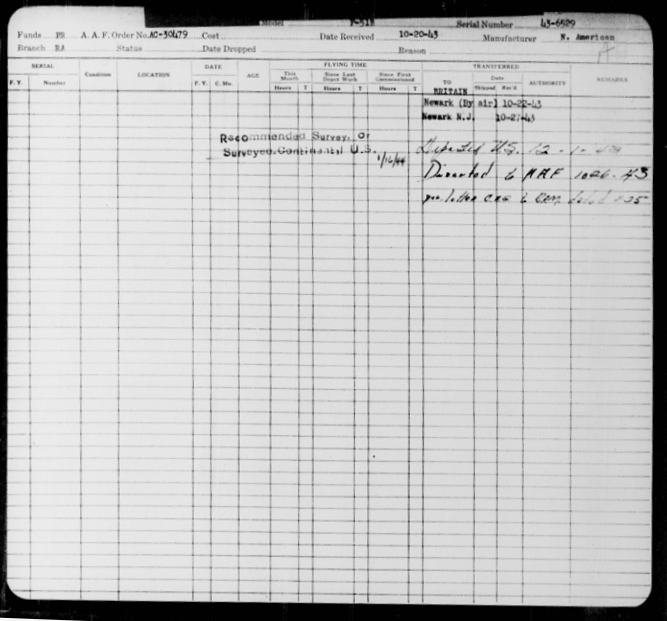 Model P-51B Serial Number 43-6529
Funds PR A. A. F. Order No. AC-30479 Cost Date Received 10-20-43 Manufacturer N. American
Branch RA Status Date Dropped Reason
SERIAL Condition LOCATION DATE AGE FLYING TIME TRANSFERRED REMARKS
This Month Since Last Depot Work Since First Commissioned TO Date AUTHORITY
F. Y. Number F. Y. C. Mo. Hours T Hours T Hours T Shipped Rec'd
BRITAIN
Newark (By air) 10-22-43
Newark N.J. 10-27-43
Recommended Survey, or
Surveyed Continental U.S. 1/16/44
Departed U.S. 12-1-
Diverted to 10-26-43
per letter to dated